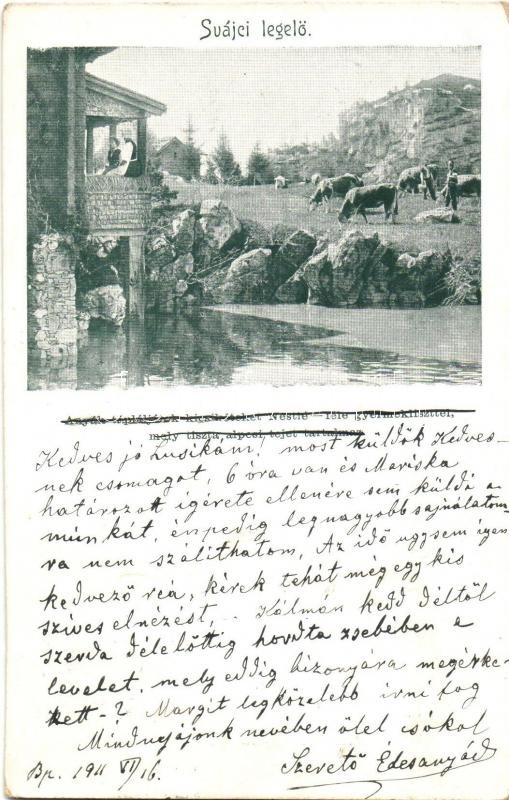 Svájci legelő.
Anyák tápláljátok kicsinyeiteket Nestlé-féle gyermekliszttel,
mely tiszta alpesi tejet tartalmaz.
Kedves jó Lusikám! most küldők Kedves-
nek csomagot, 6 óra van és Mariska
határozott igérete ellenére sem küldi a
munkát, én pedig legnagyobb sajnálatom
ra nem szálithatom, Az idő ugysem igen
kedvező reá, kérek tehát még egy kis
szives elnézést, .. Kálmán kedd déltől
szerda délelőttig hordta zsebében e
levelet, mely eddig bizonyára megérke-
zett - ? Margit legközelebb irni fog
Mindnyájonk nevében ölel csókol
Bp. 1911 VI/16. Szerető Édesanyád